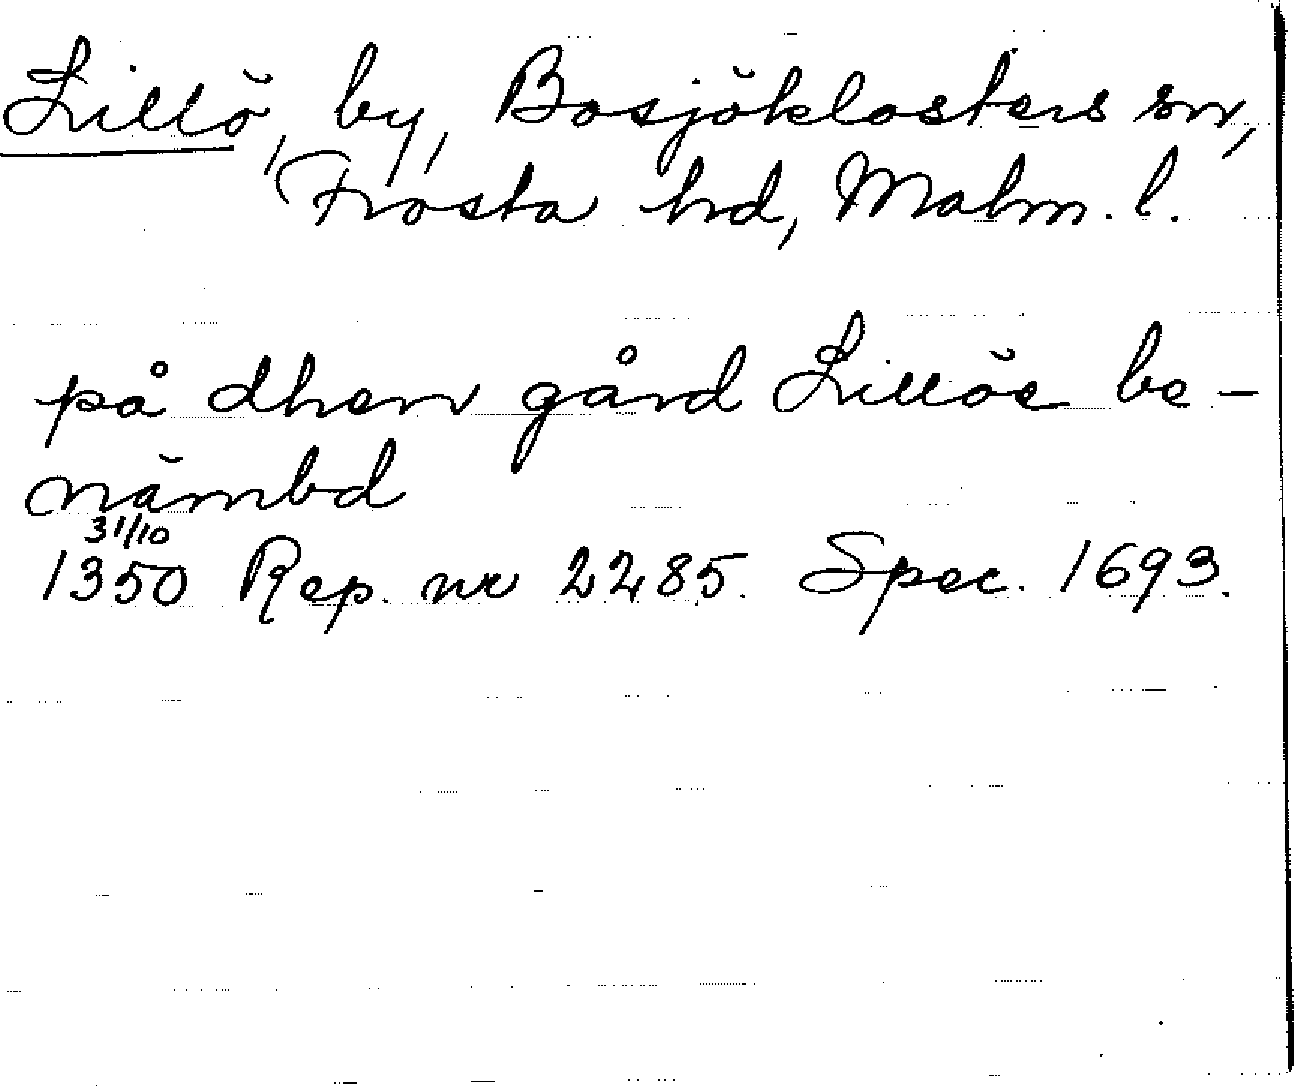 Lillö, by, Bosjöklosters sn,
Frosta hd, Malm. l.
på dhen gård Lillöe be-
nämbd
31/10
1350 Rep. nr 2285. Spec. 1693.